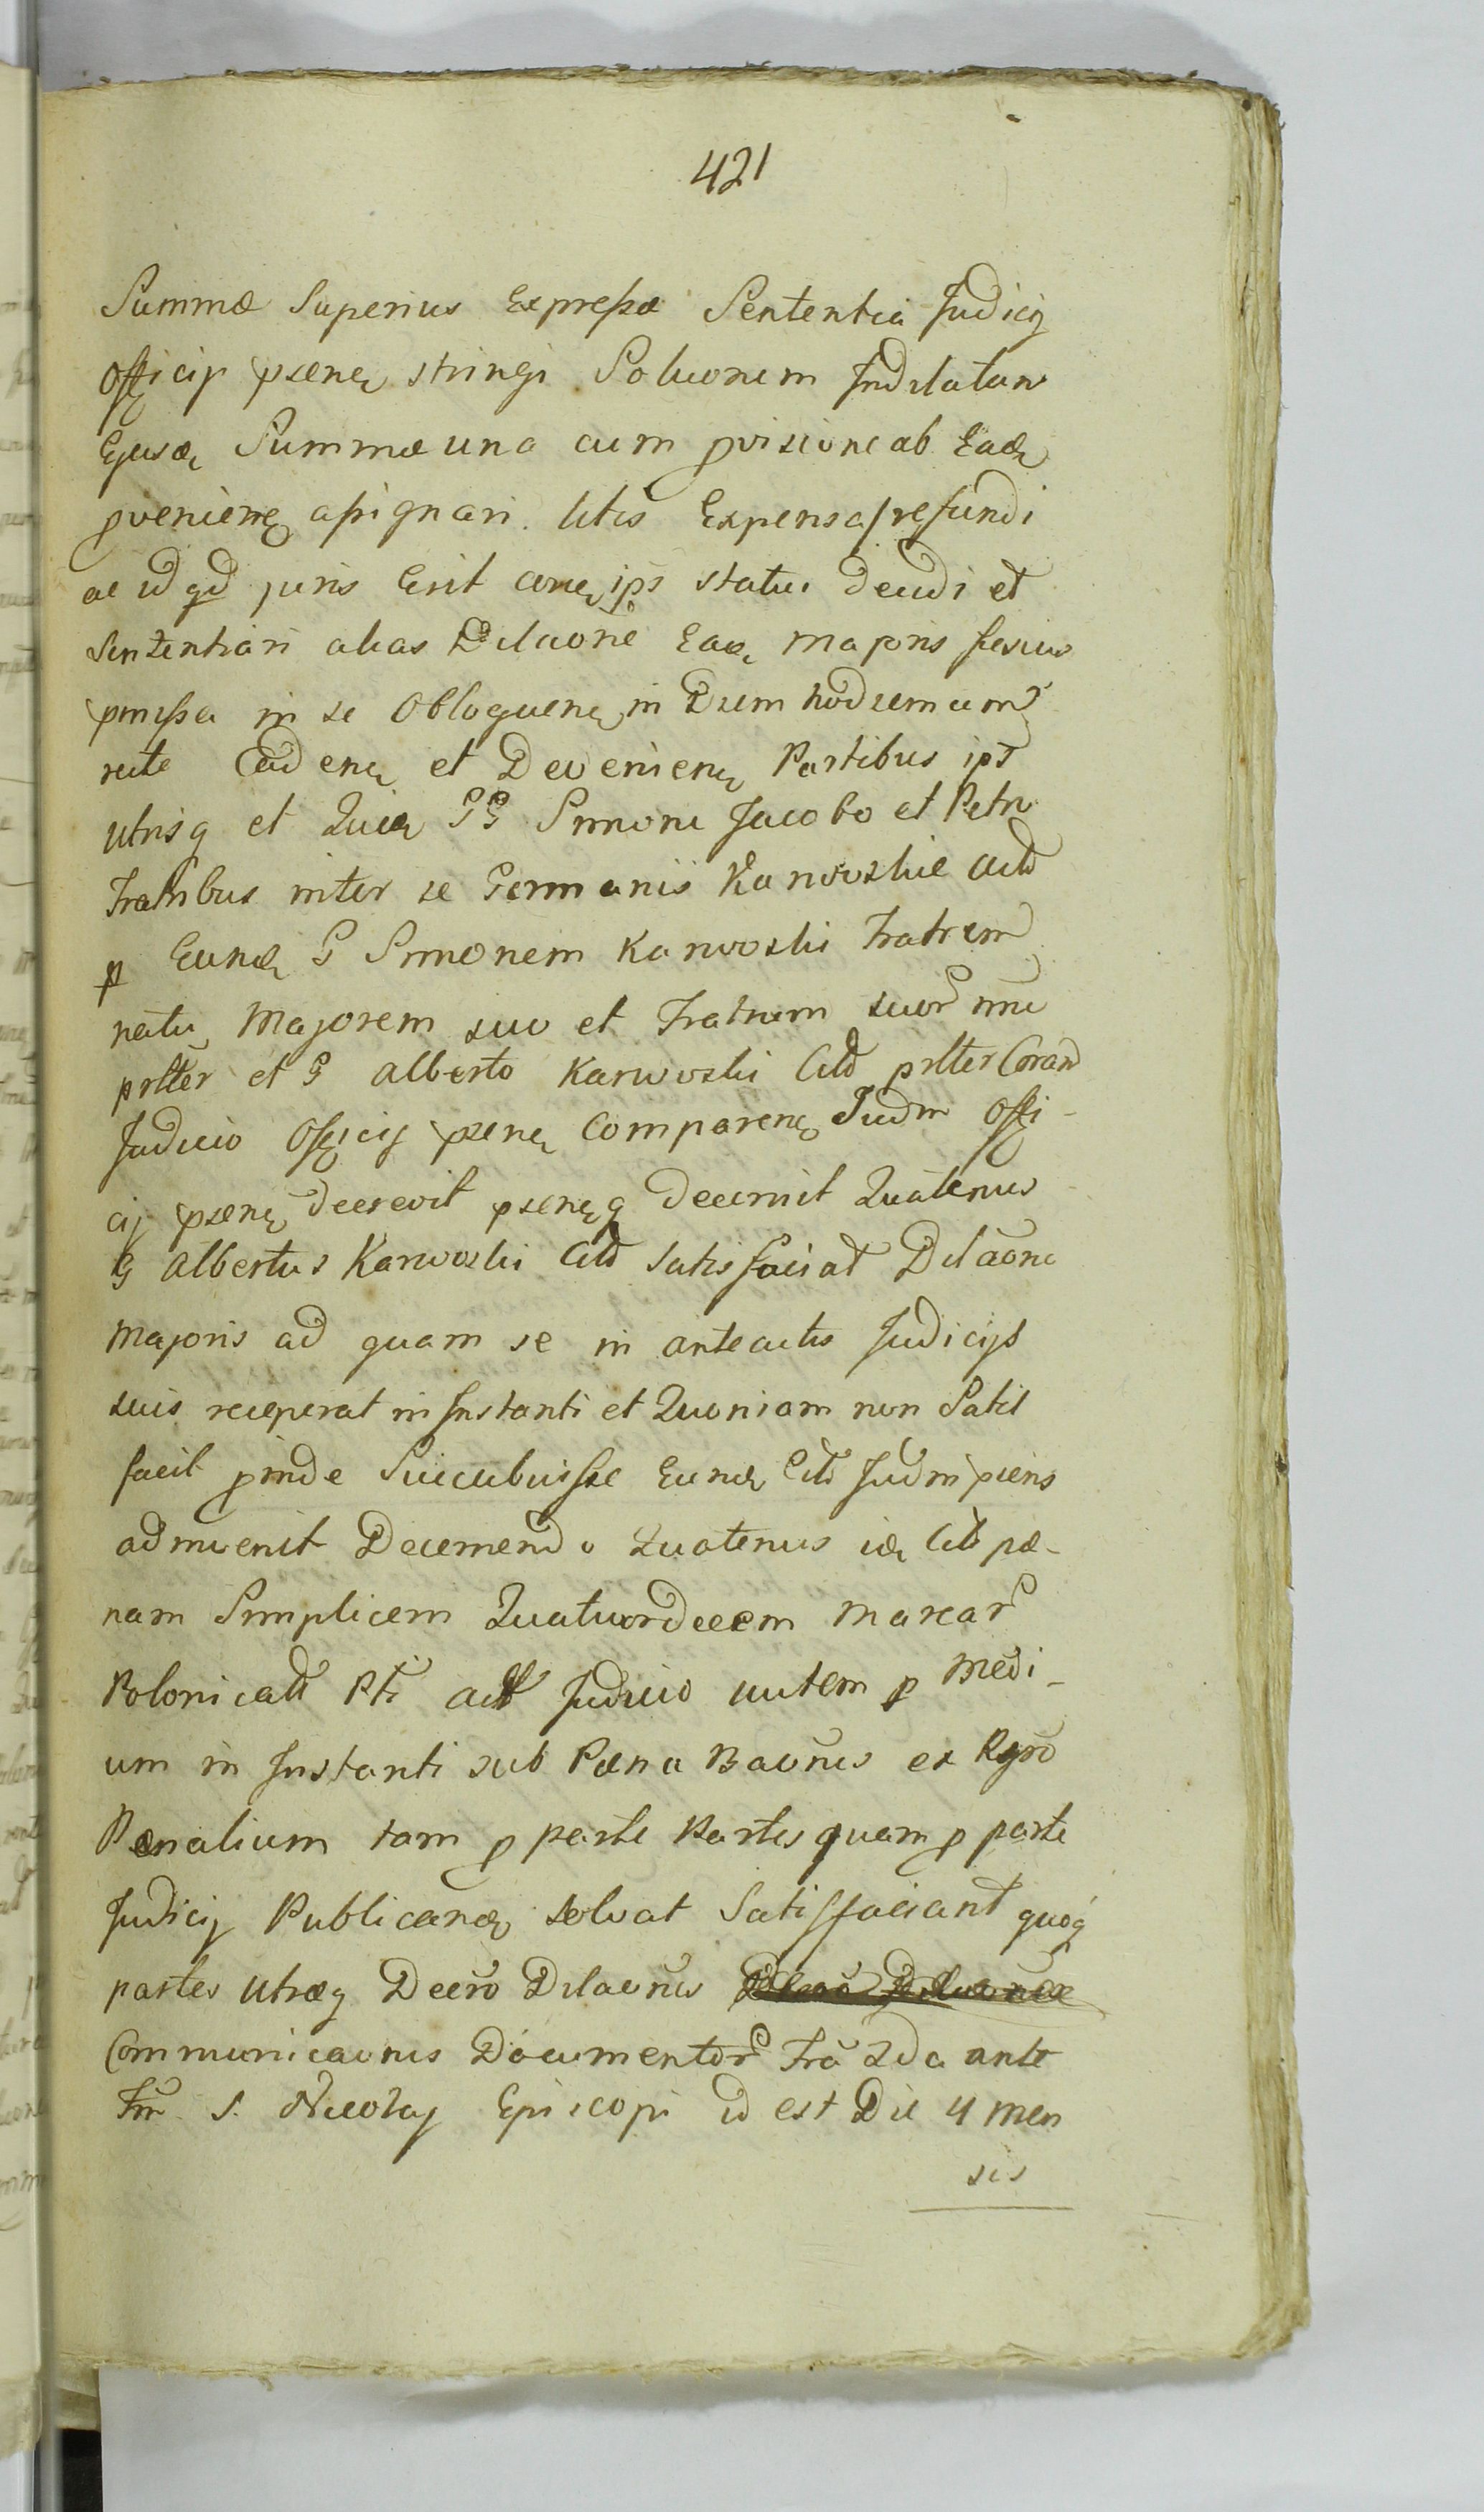 421
Summæ Superius Expressæ Sententia Judicij
Officij psenę stringi Soluonem Indilatam
Ejusdę Summæ una cum pvisione ab Eadę
pvenienę assignari. litis Expensas refundi
ac id qd juris Erit conę ips statui Decidi et
Sententiari alias Dilaone Eadę Majoris fesius
pmissa in se Obloquenę in Diem hodiernum
rite Cadenę et Devenienę Partibus ips
utrisq et Quidę GG Simone Jacobo et Petro
Fratribus inter se Germanis Karwoskie Actb
p Eundę G Simonem Karwoski Fratrem
natu Majorem suo et Fratrum suor nne
prltter et G Alberto Karwoski Citto prltter Coram
Judicio Officij psenę Comparenę Judm Offi-
cij psenę decrevit psenęq decernit Quatenus
G Albertus Karwoski Citt satisfaciat Dilaone
Majoris ad quam se in anteactis Judicijs
suis receperat in Instanti et Quoniam non Satis
facit pinde Succubuisse Eundę Citt Judm psens
adinvenit Decernendo Quatenus idę Citt pæ-
nam Simplicem Quatuordecem Marcar
Polonicall Pti actb Judicio autem p Medi-
um in Instanti sub Pæna Baonis ex Rgro
Pænalium tam p parte Partis quam p parte
Judicij Publicandę solvat Satisfaciant quoq
partes Utræq Decro Dilaonis
Communicaonis Documentor Fra 2da ante
Fm S. Nicolaj Episcopi id est Die 4 Men
sis